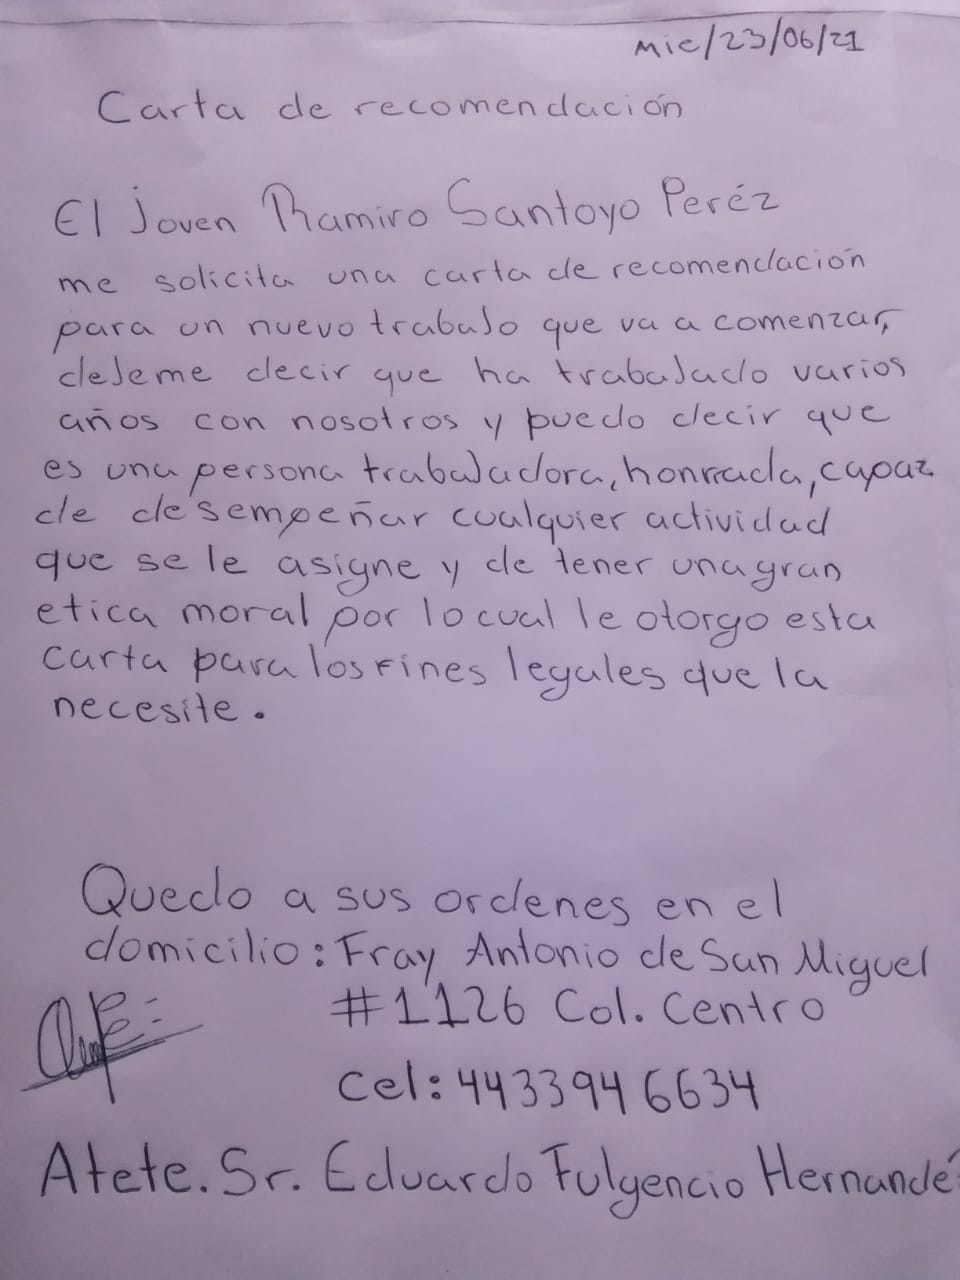 Mie/23/06/21
Carta de recomendación
El Joven Ramiro Santoyo Peréz
me solicita una carta de recomendación
para un nuevo trabajo que va a comenzar,
dejeme decir que ha trabajado varios
años con nosotros y puedo decir que
es una persona trabajadora, honrrada, capaz
de desempeñar cualquier actividad
que se le asigne y de tener una gran
etica moral por lo cual le otorgo esta
carta para los fines legales que la
necesite.
Quedo a sus ordenes en el
domicilio: Fray Antonio de San Miguel
#1126 Col. Centro
Cel: 4433946634
Atete. Sr. Eduardo Fulgencio Hernandé